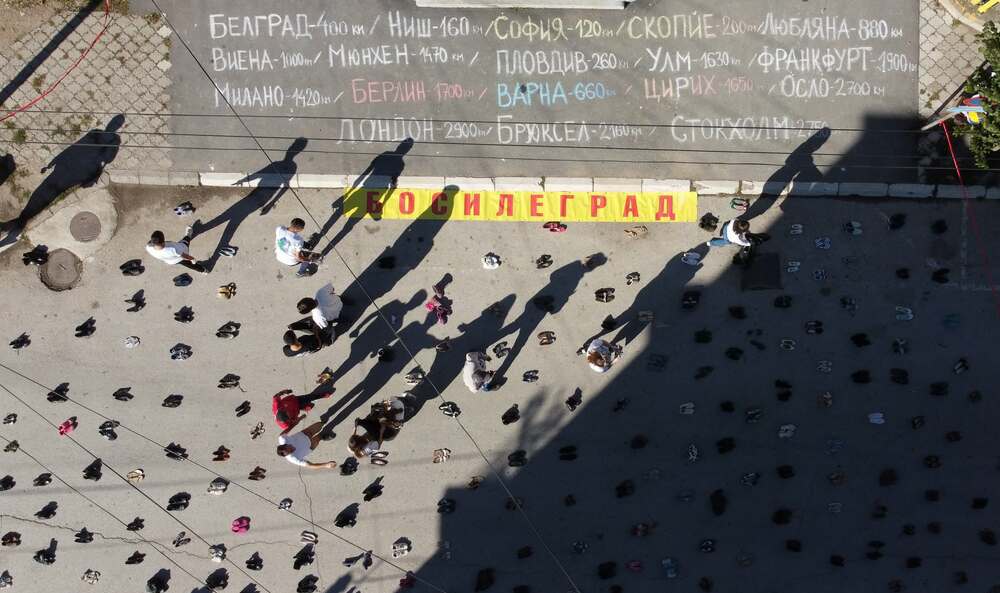 БЕЛГРАД-400 КМ / НИШ-160 КМ / СОФИЯ-120 КМ / СКОПЙЕ-200 КМ / ЛЮБЛЯНА-880 КМ
ВИЕНА-1000 КМ / МЮНХЕН-1470 КМ / ПЛОВДИВ-260 КМ / УЛМ-1630 КМ / ФРАНКФУРТ-1900 КМ
МИЛАНО-1420 КМ / БЕРЛИН-1700 КМ / ВАРНА-660 КМ / ЦИРИХ-1650 КМ / ОСЛО-2700 КМ
ЛОНДОН-2900 КМ / БРЮКСЕЛ-2160 КМ / СТОКХОЛМ-2750 КМ
БОСИЛЕГРАД